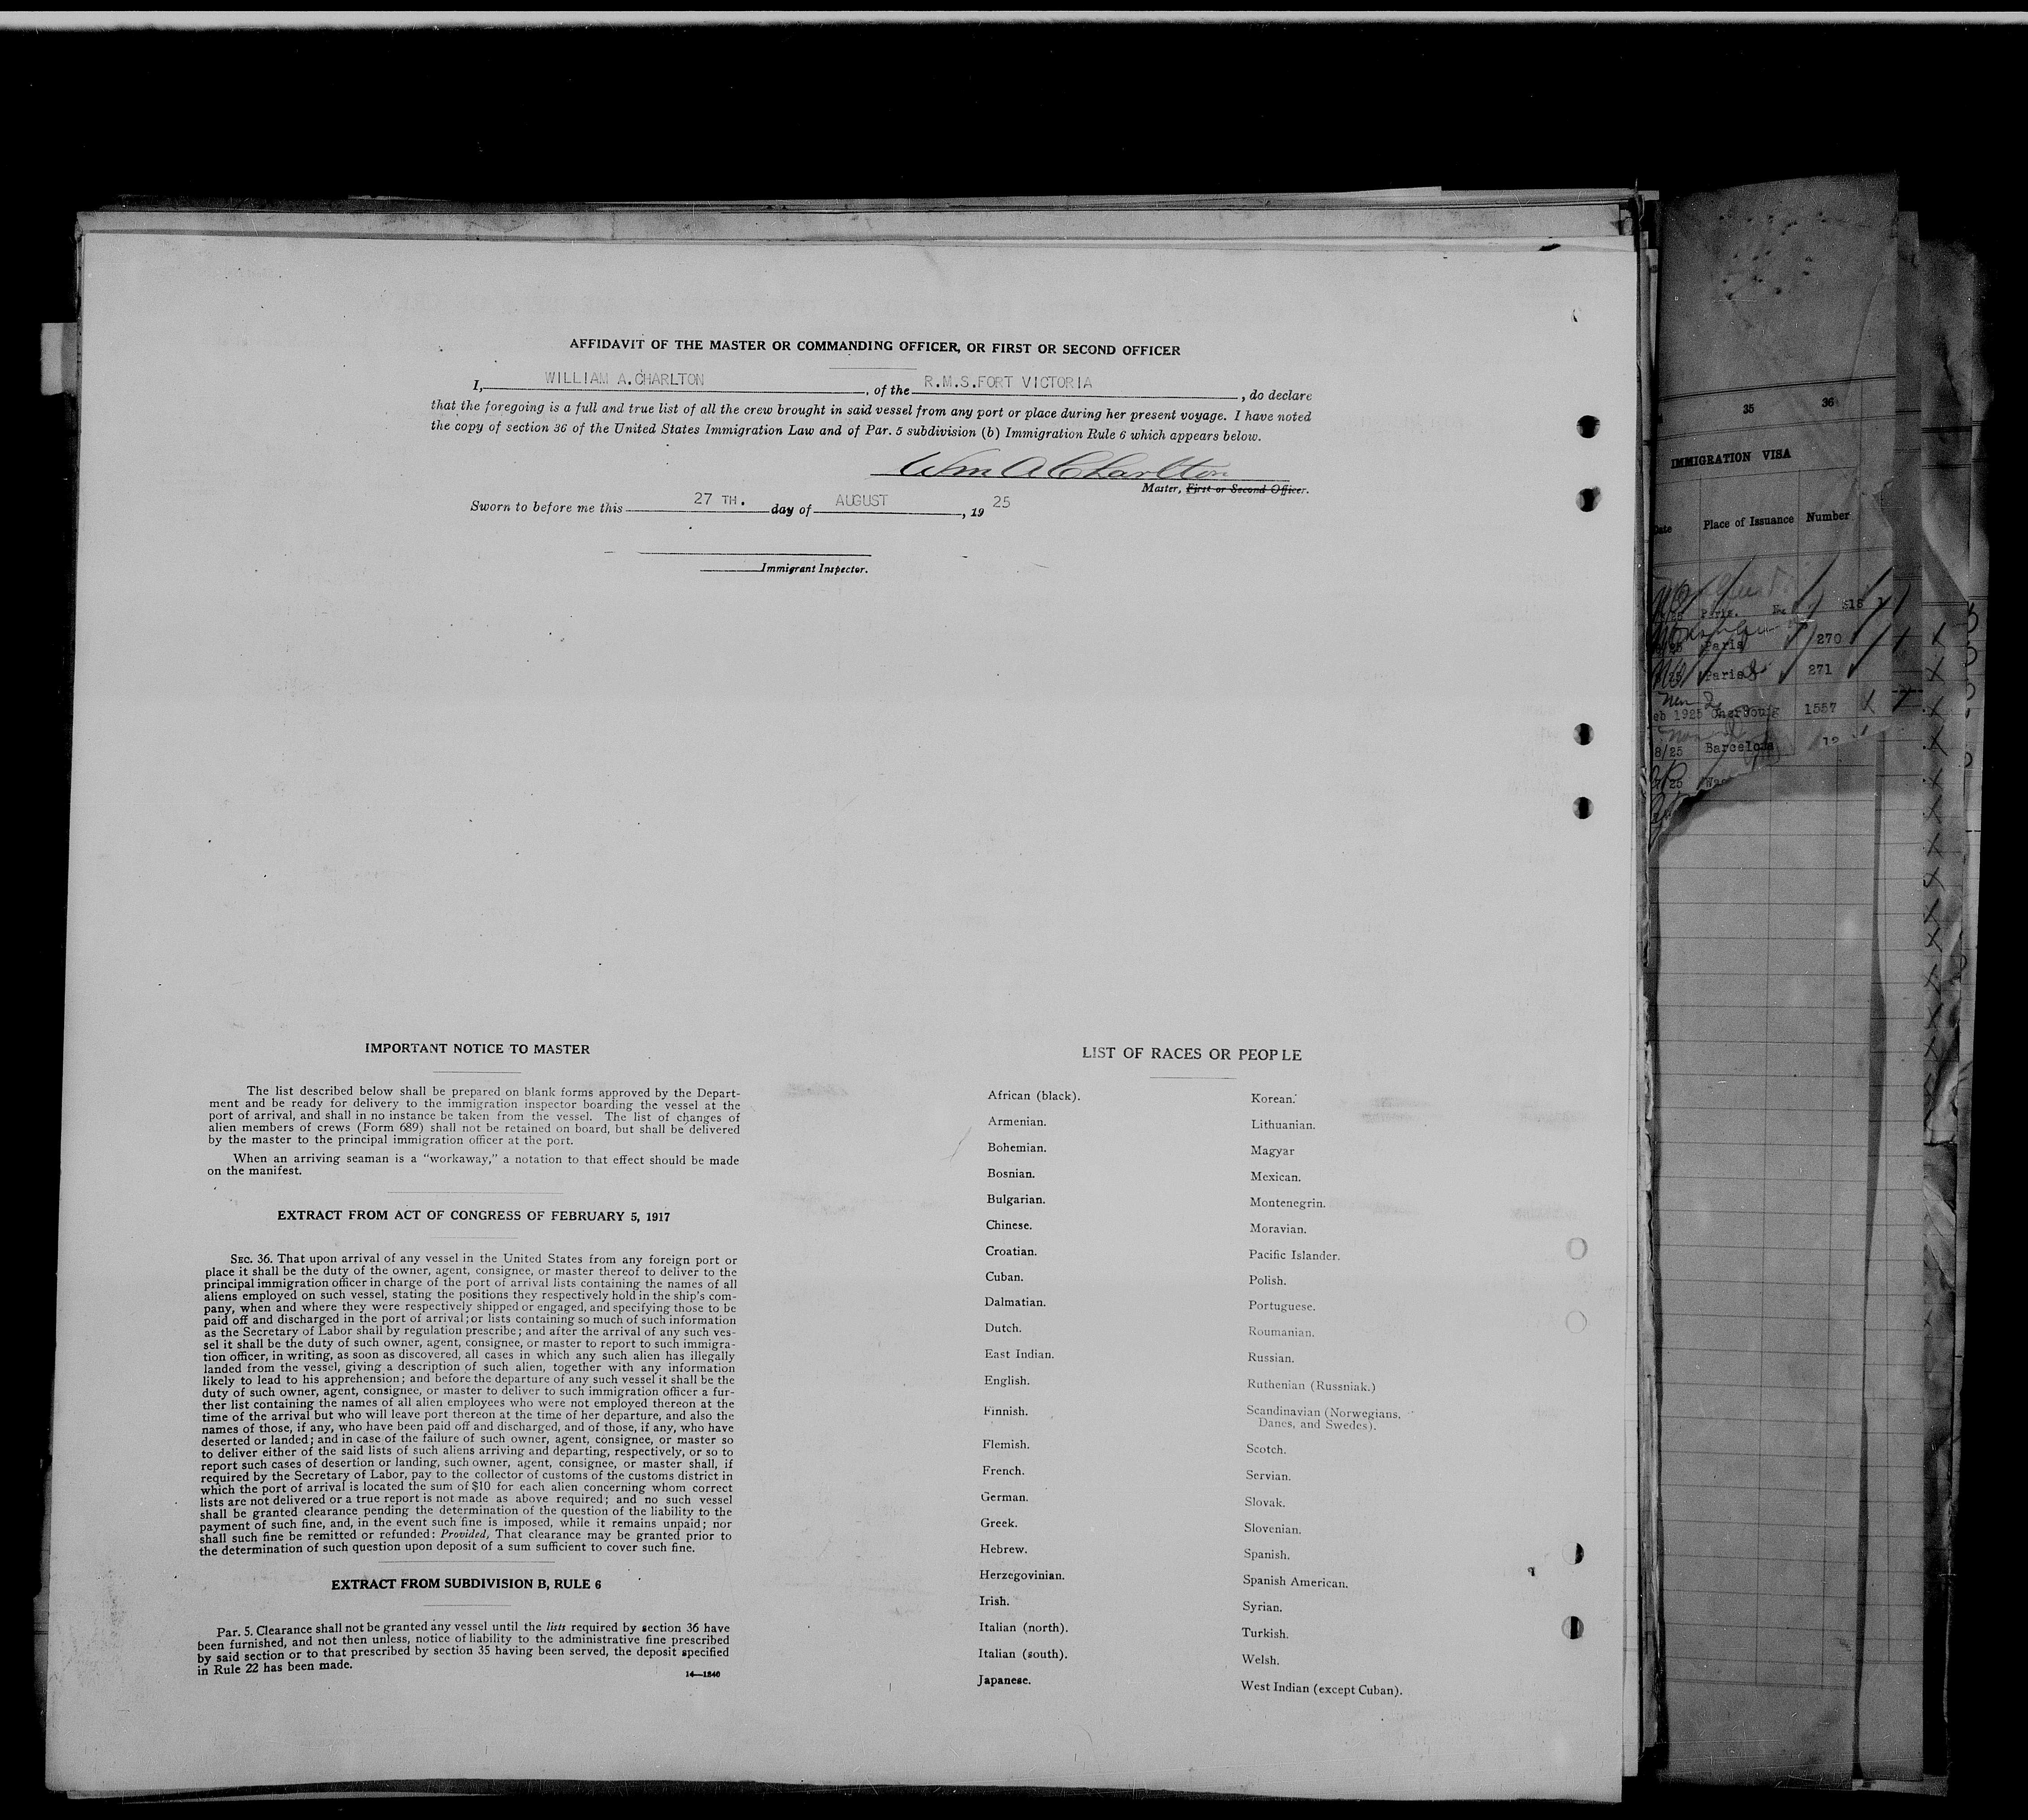 AFFIDAVIT OF THE MASTER OR COMMANDING OFFICER, OR FIRST OR SECOND OFFICER
I, WILLIAM A.CHARLTON, of the R.M.S.FORT VICTORIA, do declare
that the foregoing is a full and true list of all the crew brought in said vessel from any port or place during her present voyage. I have noted
the copy of section 36 of the United States Immigration Law and of Par. 5 subdivision (b) Immigration Rule 6 which appears below.
Wm A Charlton
Master, First or Second Officer.
Sworn to before me this 27 TH. day of AUGUST, 19 25
Immigrant Inspector.
IMPORTANT NOTICE TO MASTER
The list described below shall be prepared on blank forms approved by the Depart-
ment and be ready for delivery to the immigration inspector boarding the vessel at the
port of arrival, and shall in no instance be taken from the vessel. The list of changes of
alien members of crews (Form 689) shall not be retained on board, but shall be delivered
by the master to the principal immigration officer at the port.
When an arriving seaman is a "workaway," a notation to that effect should be made
on the manifest.
EXTRACT FROM ACT OF CONGRESS OF FEBRUARY 5, 1917
SEC. 36. That upon arrival of any vessel in the United States from any foreign port or
place it shall be the duty of the owner, agent, consignee, or master thereof to deliver to the
principal immigration officer in charge of the port of arrival lists containing the names of all
aliens employed on such vessel, stating the positions they respectively hold in the ship's com-
pany, when and where they were respectively shipped or engaged, and specifying those to be
paid off and discharged in the port of arrival; or lists containing so much of such information
as the Secretary of Labor shall by regulation prescribe; and after the arrival of any such ves-
sel it shall be the duty of such owner, agent, consignee, or master to report to such immigra-
tion officer, in writing, as soon as discovered, all cases in which any such alien has illegally
landed from the vessel, giving a description of such alien, together with any information
likely to lead to his apprehension; and before the departure of any such vessel it shall be the
duty of such owner, agent, consignee, or master to deliver to such immigration officer a fur-
ther list containing the names of all alien employees who were not employed thereon at the
time of the arrival but who will leave port thereon at the time of her departure, and also the
names of those, if any, who have been paid off and discharged, and of those, if any, who have
deserted or landed; and in case of the failure of such owner, agent, consignee, or master so
to deliver either of the said lists of such aliens arriving and departing, respectively, or so to
report such cases of desertion or landing, such owner, agent, consignee, or master shall, if
required by the Secretary of Labor, pay to the collector of customs of the customs district in
which the port of arrival is located the sum of $10 for each alien concerning whom correct
lists are not delivered or a true report is not made as above required; and no such vessel
shall be granted clearance pending the determination of the question of the liability to the
payment of such fine, and, in the event such fine is imposed, while it remains unpaid; nor
shall such fine be remitted or refunded: Provided, That clearance may be granted prior to
the determination of such question upon deposit of a sum sufficient to cover such fine.
EXTRACT FROM SUBDIVISION B, RULE 6
Par. 5. Clearance shall not be granted any vessel until the lists required by section 36 have
been furnished, and not then unless, notice of liability to the administrative fine prescribed
by said section or to that prescribed by section 35 having been served, the deposit specified
in Rule 22 has been made.
14—1240
LIST OF RACES OR PEOPLE
African (black).
Armenian.
Bohemian.
Bosnian.
Bulgarian.
Chinese.
Croatian.
Cuban.
Dalmatian.
Dutch.
East Indian.
English.
Finnish.
Flemish.
French.
German.
Greek.
Hebrew.
Herzegovinian.
Irish.
Italian (north).
Italian (south).
Japanese.
Korean.
Lithuanian.
Magyar
Mexican.
Montenegrin.
Moravian.
Pacific Islander.
Polish.
Portuguese.
Roumanian.
Russian.
Ruthenian (Russniak.)
Scandinavian (Norwegians,
Danes, and Swedes).
Scotch.
Servian.
Slovak.
Slovenian.
Spanish.
Spanish American.
Syrian.
Turkish.
Welsh.
West Indian (except Cuban).
35 36
IMMIGRATION VISA
Date Place of Issuance Number
Paris.
Paris 270
Paris 271
1925 Cherbourg 1557
8/25 Barcelona